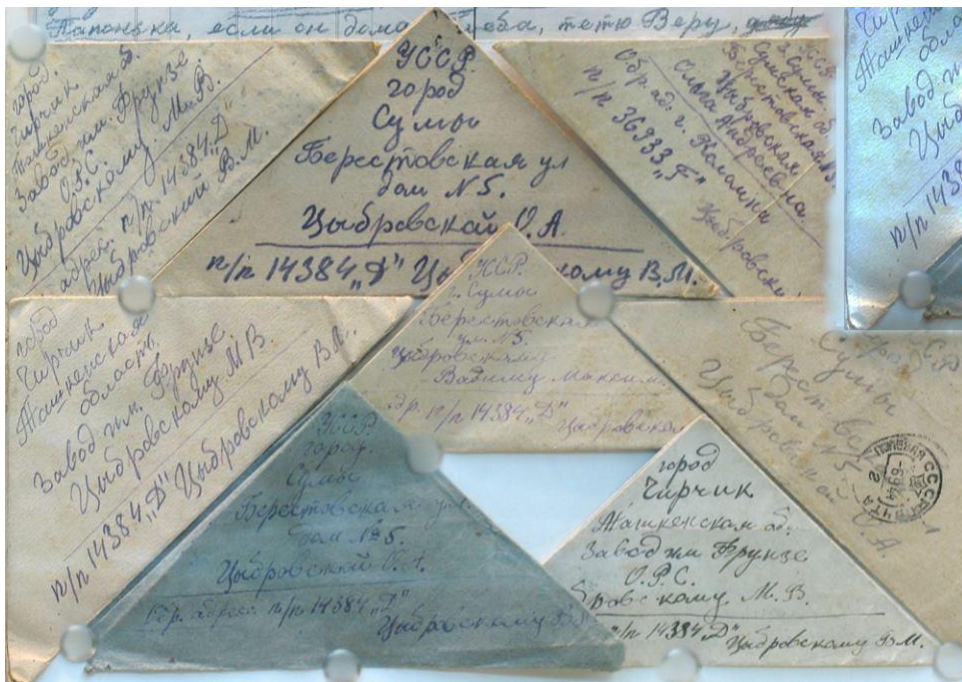 Папонька, если он дома тетю Веру,
город.
Чирчик
Ташкенская об.
Завод им. Фрунзе.
О.Р.С.
Цыбровскому. М.В.
адрес. п/п. 14384„Д"
Цыбровский В.М.
УССР.
город
Сумы
Берестовская ул
дом №5.
Цыбровской О.А.
п/п 14384„Д" Цыбровскому В.М.
УССР.
г. Сумы
Сумская об
Берестовская №5.
Цыбровская
Ольга Андреевна.
Обр. ад. г. Коломки
п/п 36933„Г" Цыбровский
Чирчик
Ташкен
обла
Завод им
Цыб
п/п 1438
город
Чирчик
Ташкенская
область
Завод им. Фрунзе
Цыбровскому МВ
п/п 14384„Д" Цыбровскому В.М.
УССР.
г. Сумы
Берестовская
ул. №5.
Цыбровскими
Вадиму Максим.
др. п/п 14384„Д" Цыбровском
ССР.
город
Сумы
Берестовск
дом №5
Цыбровской
О.А.
УССР.
город.
Сумы
Берестовская ул.
дом №5.
Цыбровский О.А.
Обр. адрес. п/п 14384„Д"
Цыбровскому В.М.
город
Чирчик
Ташкенская об.
Завод им Фрунзе
О.Р.С.
бровскому М.В.
п/п 14384„Д" Цыбровскому В.М.